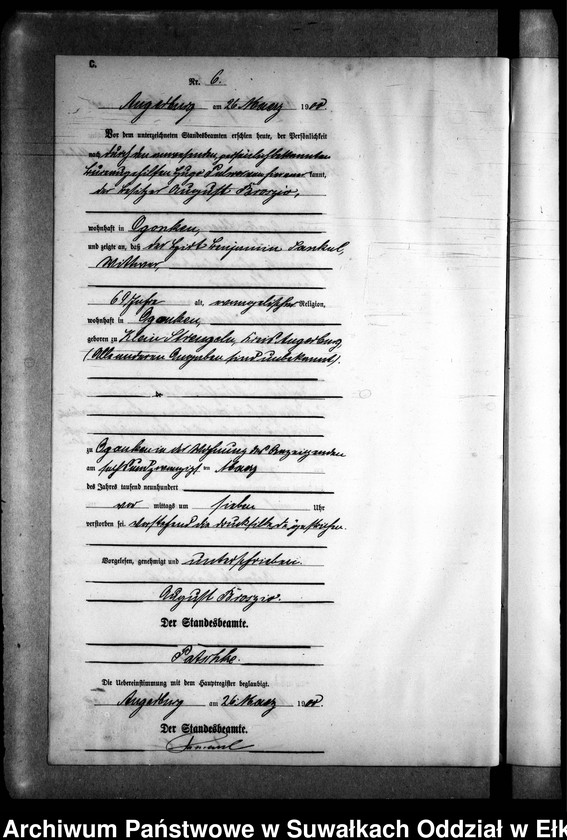 C.
Nr. 6.
Angerburg am 26 März 1900.
Vor dem unterzeichneten Standesbeamten erschien heute, der Persönlichkeit
nach durch den anwesenden, persönlich bekannten
Büreaugehilfen Hugo kannt,
der Besitzer August Kroszio,
wohnhaft in Ogonken,
und zeigte an, daß der Wirth Benjamin
Wittwer,
69 Jahre alt, evangelischer Religion,
wohnhaft in Ogonken,
geboren zu Klein Strengeln, Kreis Angerburg,
(Alle anderen Angaben sind unbekannt).
de
zu Ogonken in der Wohnung des Anzeigenden
am sechsundzwanzigsten März
des Jahres tausend neunhundert
vor mittags um sieben Uhr
verstorben sei. Vorstehend die Drucksilbe de gestrichen.
Vorgelesen, genehmigt und unterschrieben.
August Kroszio.
Der Standesbeamte.
Patschke.
Die Uebereinstimmung mit dem Hauptregister beglaubigt.
Angerburg am 26 März 1900.
Der Standesbeamte.
Archiwum Państwowe w Suwałkach Oddział w Ełk